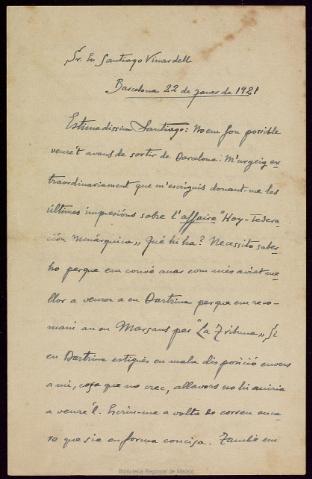 Sr. En Santiago Vinardell
Barcelona 22 de janer de 1921
Estimadissim Santiago: No em fou possible
veure't avans de sortir de Barcelona. M'urgeig ex-
traordinariament que m'escriguis donant-me les
últimes impresións sobre l'affaire "Hoy-Federa-
ción Monárquica". Què hi ha? Necessito saber-
ho perque em convé anar com més aviat mi-
llor a veure a en Bastrina perque em reco-
mani an en Marsans per "La Tribuna". Si
en Bastrina estigués en mala disposició envers
a mi, cosa que no crec, allavors no hi aniria
a veure'l. Escriu-me a volta de correu enca-
ra que sia en forma concisa. També em
Biblioteca Regional de Madrid